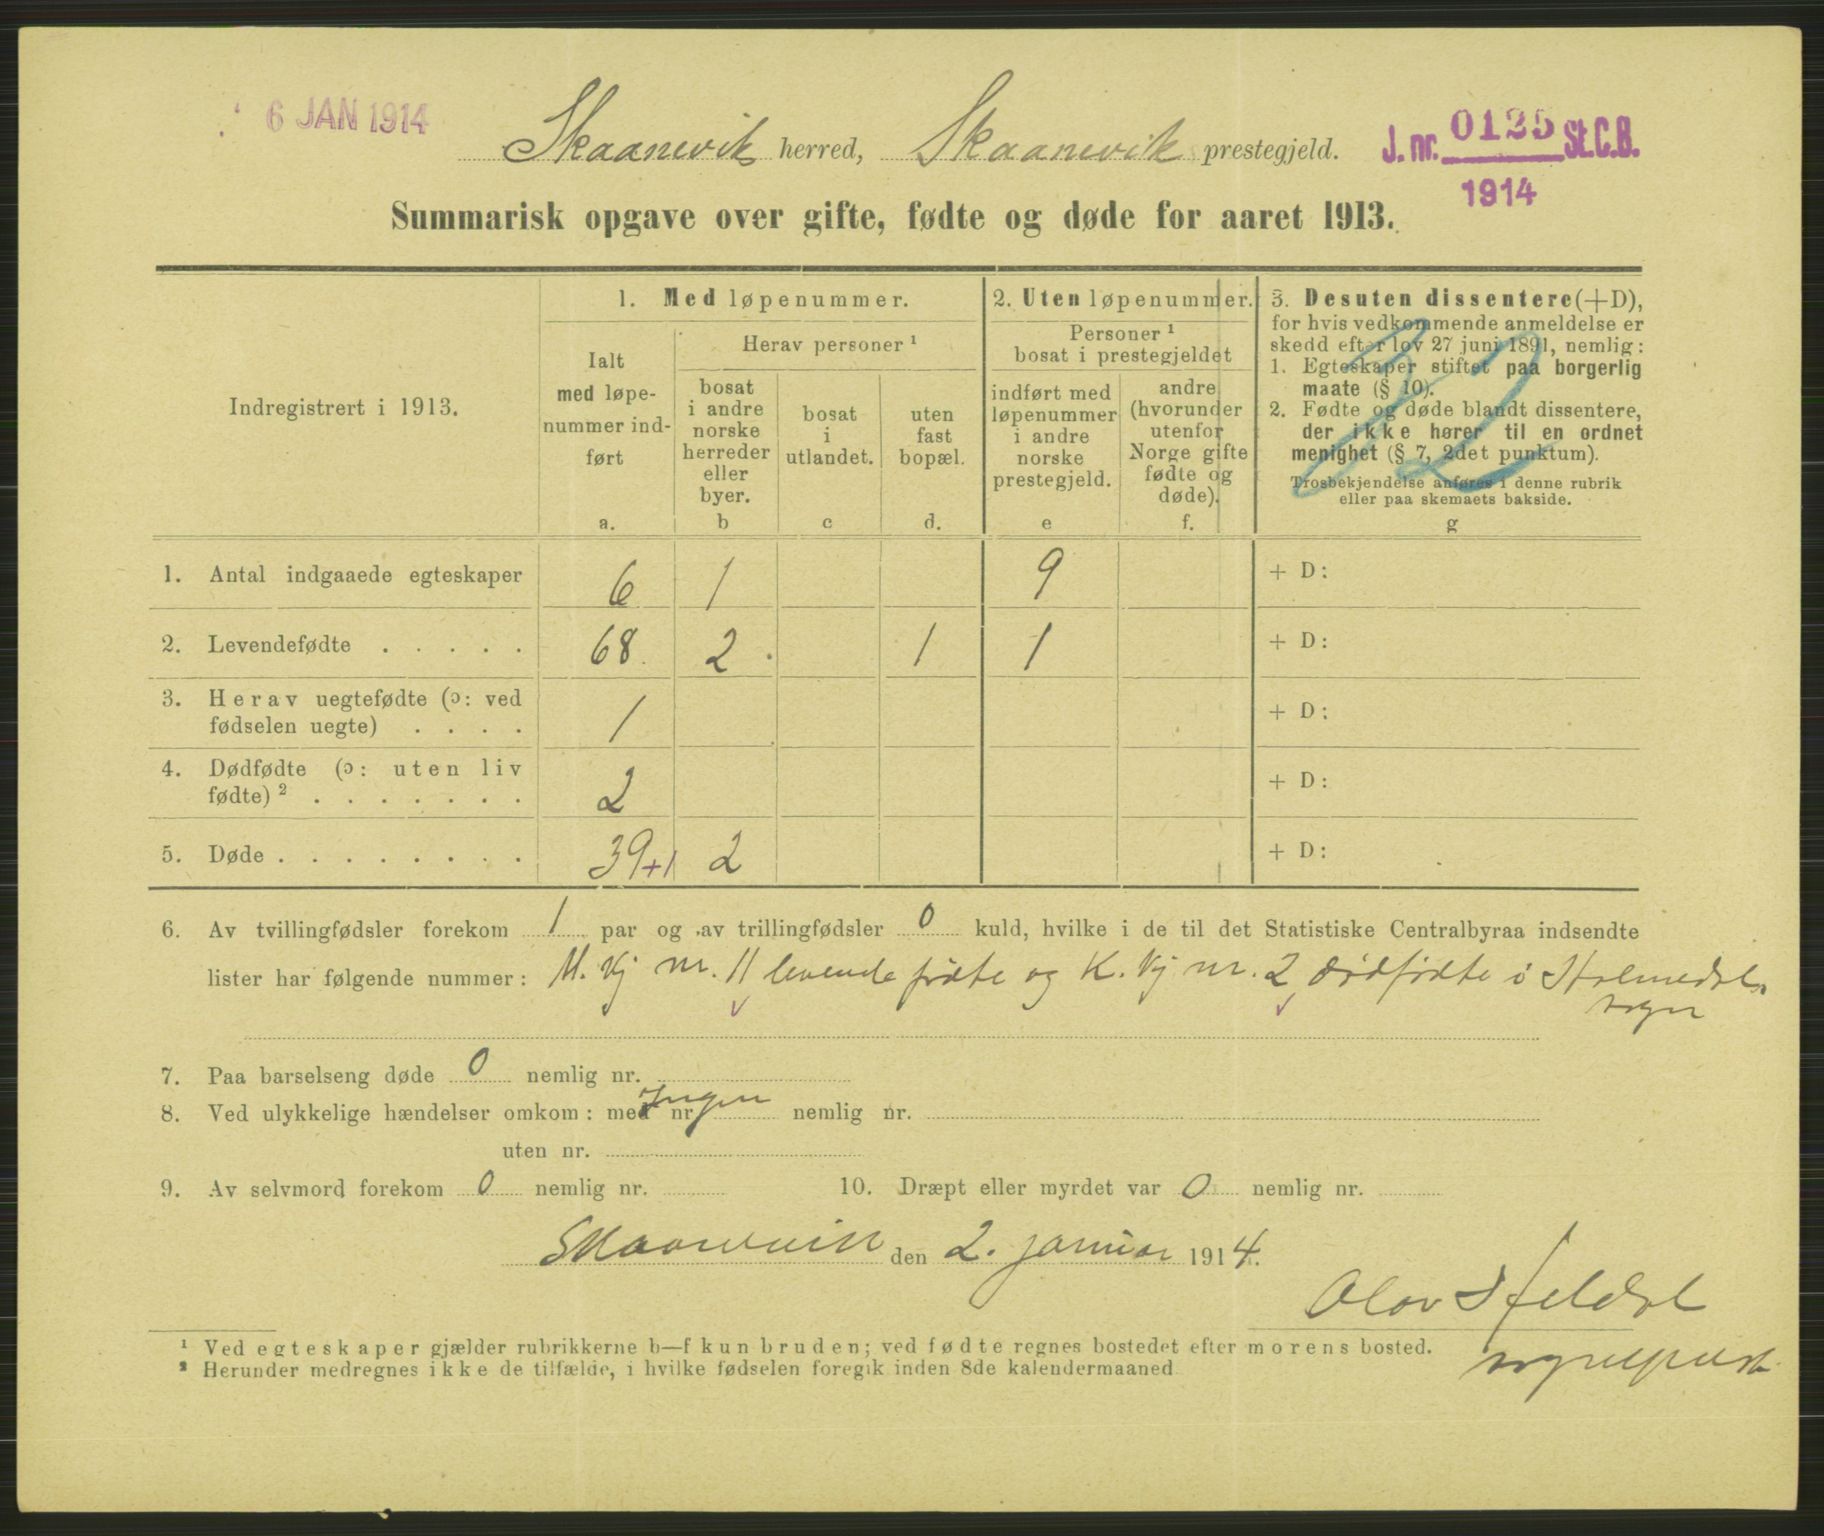 6 JAN 1914
Skaanevik herred, Skaanevik prestegjeld.
J. nr. 0125 St.C.B.
1914
Summarisk opgave over gifte, fødte og døde for aaret 1913.
Indregistrert i 1913.
1. Med løpenummer.
Ialt
med løpe-
nummer ind-
ført
a.
Herav personer ¹
bosat
i andre
norske
herreder
eller
byer.
b
bosat
i
utlandet.
c
uten
fast
bopæl.
d.
2. Uten løpenummer.
Personer ¹
bosat i prestegjeldet
indført med
løpenummer
i andre
norske
prestegjeld.
e
andre
(hvorunder
utenfor
Norge gifte
fødte og
døde).
f.
3. Desuten dissentere (+D),
for hvis vedkommende anmeldelse er
skedd efter lov 27 juni 1891, nemlig:
1. Egteskaper stiftet paa borgerlig
maate (§ 10).
2. Fødte og døde blandt dissentere,
der ikke hører til en ordnet
menighet (§ 7, 2det punktum).
Trosbekjendelse anføres i denne rubrik
eller paa skemaets bakside.
g
22
1. Antal indgaaede egteskaper 6 1 9 + D:
2. Levendefødte . . . . . 68 2 1 1 + D:
3. Herav uegtefødte (ɔ: ved
fødselen uegte) . . . . 1 + D:
4. Dødfødte (ɔ: uten liv
fødte) ² . . . . . . . 2 + D:
5. Døde . . . . . . . . 39+1 2 + D:
6. Av tvillingfødsler forekom 1 par og av trillingfødsler 0 kuld, hvilke i de til det Statistiske Centralbyraa indsendte
lister har følgende nummer: M. Kj nr. 11 levende fødte og K. Kj nr. 2 dødfødte i Holmedal
sogn
7. Paa barselseng døde 0 nemlig nr.
8. Ved ulykkelige hændelser omkom: med nr. Ingen nemlig nr.
uten nr.
9. Av selvmord forekom 0 nemlig nr. 10. Dræpt eller myrdet var 0 nemlig nr.
Skaanevik den 2. januar 1914.
Olav
sogneprest
¹ Ved egteskaper gjælder rubrikkerne b—f kun bruden; ved fødte regnes bostedet efter morens bosted.
² Herunder medregnes ikke de tilfælde, i hvilke fødselen foregik inden 8de kalendermaaned